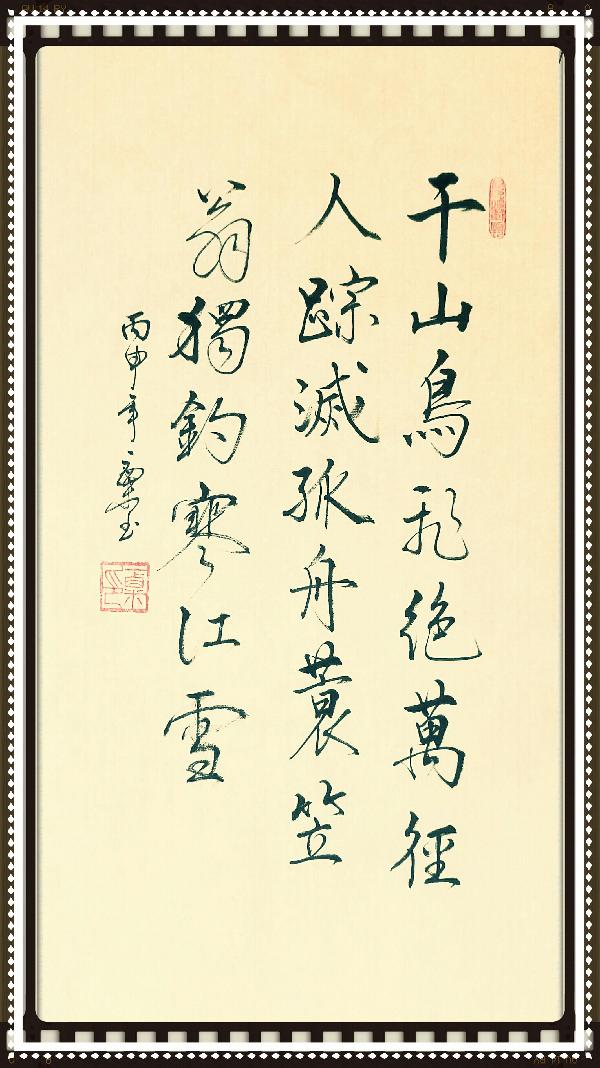 千山鳥飛絶萬徑
人踪滅孤舟蓑笠
翁獨釣寒江雪
丙申年